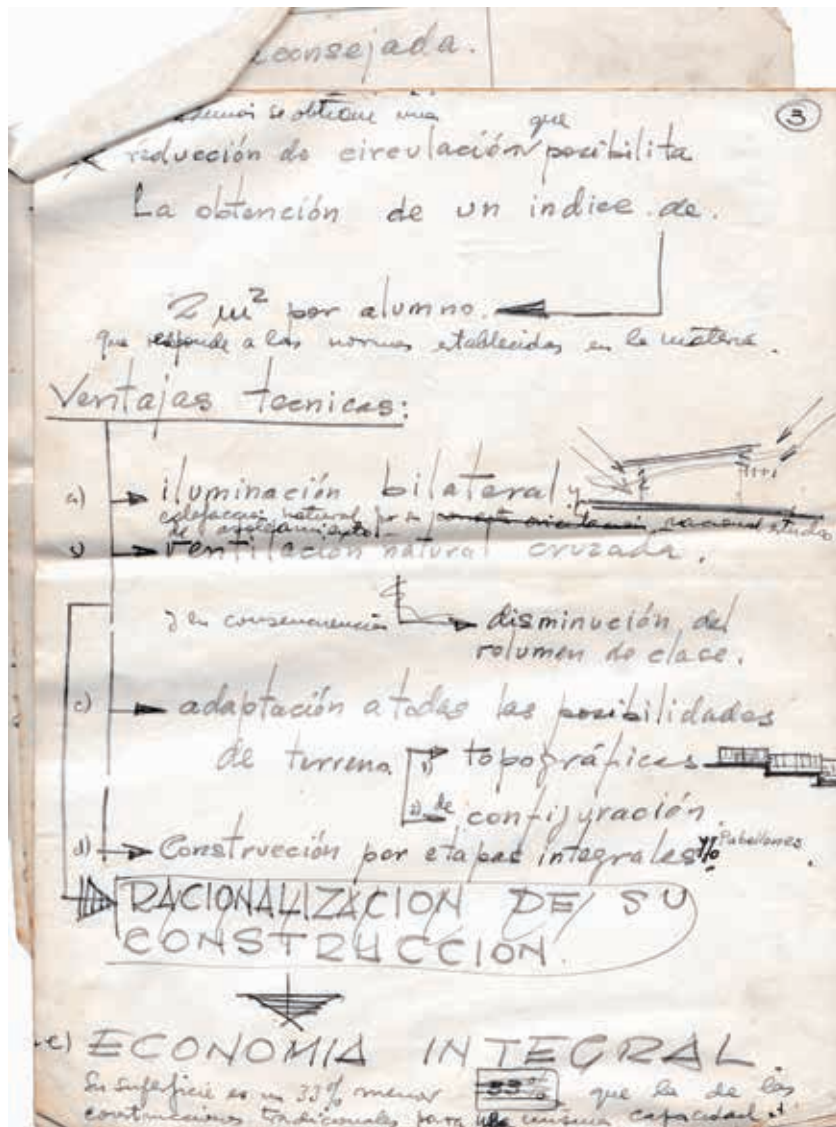 consejada.
3
se obtiene una que
reducción de circulación posibilita
La obtención de un indice de.
2 m² por alumno.
que responde a las normas establecidas en la materia.
Ventajas tecnicas:
a) iluminación bilateral y
natural por su racional estudio
de asoleamiento
ventilación natural cruzada.
y en consecuencia disminución del
volumen de clace.
c) adaptación a todas las posibilidades
de terreno 1) topográficas
2) de configuración
d) Construcción por etapas integrales y/o Pabellones.
RACIONALIZACION DE SU
CONSTRUCCION.
e) ECONOMIA INTEGRAL
Su superficie es un 33% menor 33% que la de las
construcciones tradicionales para una misma capacidad